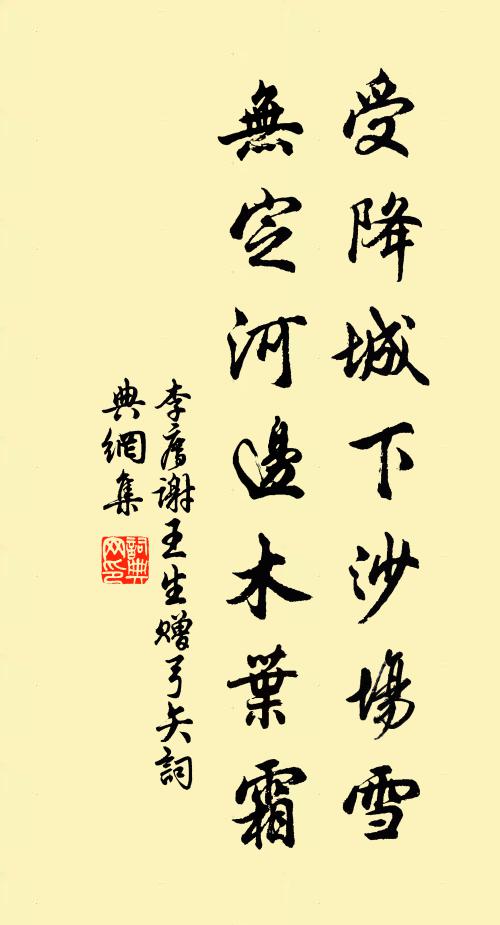 受降城下沙場雪
無定河邊木葉霜
李廌謝王生贈弓矢詞
典網集
詞典
网印